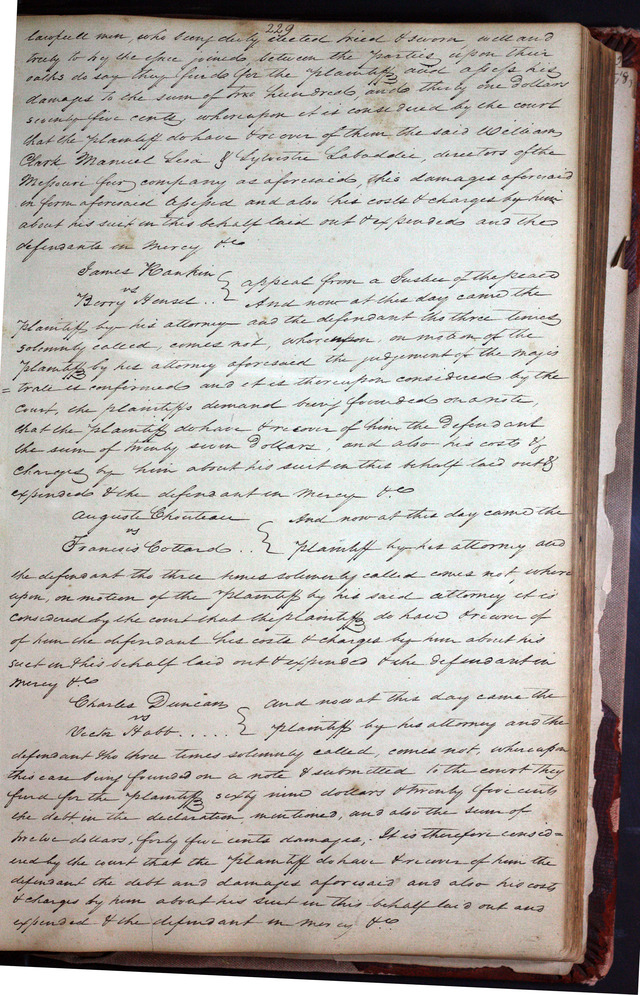 229
lawfull men, who being duly elected tried & sworn well and
truly to try the issue joined between the parties, upon their
oaths do say they find for the plaintiff, and assess his
damages to the sum of one hundred, and thirty one dollars
seventy five cents, whereupon it is considered by the court
that the plaintiff do have & recover of them the said William
Clark Manuel Lisa & Sylvestre Labaddie, directors of the
Missouri fur company as aforesaid, this damages aforesaid
in form aforesaid assessed and also his costs & charges by him
about his suit in this behalf laid out & expended and the
defendants in Mercy &c
James Rankin appeal from a Justice of the peace
vs
Berry Hensel .. And now at this day came the
plaintiff by his attorney and the defendant tho three times
solemnly called, comes not, whereupon, on motion of the
plaintiff by his attorney aforesaid the judgement of the majis
= trate is confirmed and it is thereupon considered by the
court, the plaintiffs demand being founded on a note,
that the plaintiff do have & recover of him the defendant
the sum of twenty seven Dollars, and also his costs &
charges by him about his suit in this behalf laid out &
expended & the defendant in mercy &c
Auguste Chouteau And now at this day came the
vs
Francis Cottard .. plaintiff by his attorney and
the defendant tho three times solemnly called comes not, where
upon, on motion of the plaintiff by his said attorney it is
considered by the court that the plaintiff do have & recover of
of him the defendant his costs & charges by him about his
suit in this behalf laid out & expended & the defendant in
mercy &c
Charles Duncan and now at this day came the
vs
Habb ..... plaintiff by his attorney and the
defendant tho three times solemnly called, comes not, whereupon
this case being founded on a note & submitted to the court they
find for the plaintiff sixty nine dollars & twenty five cents
the debt in the declaration mentioned, and also the sum of
twelve dollars, forty five cents damages,. It is therefore consid=
ered by the court that the plaintiff do have & recover of him the
defendant the debt and damages aforesaid and also his costs
& charges by him about his suit in this behalf laid out and
expended & the defendant in mercy &c